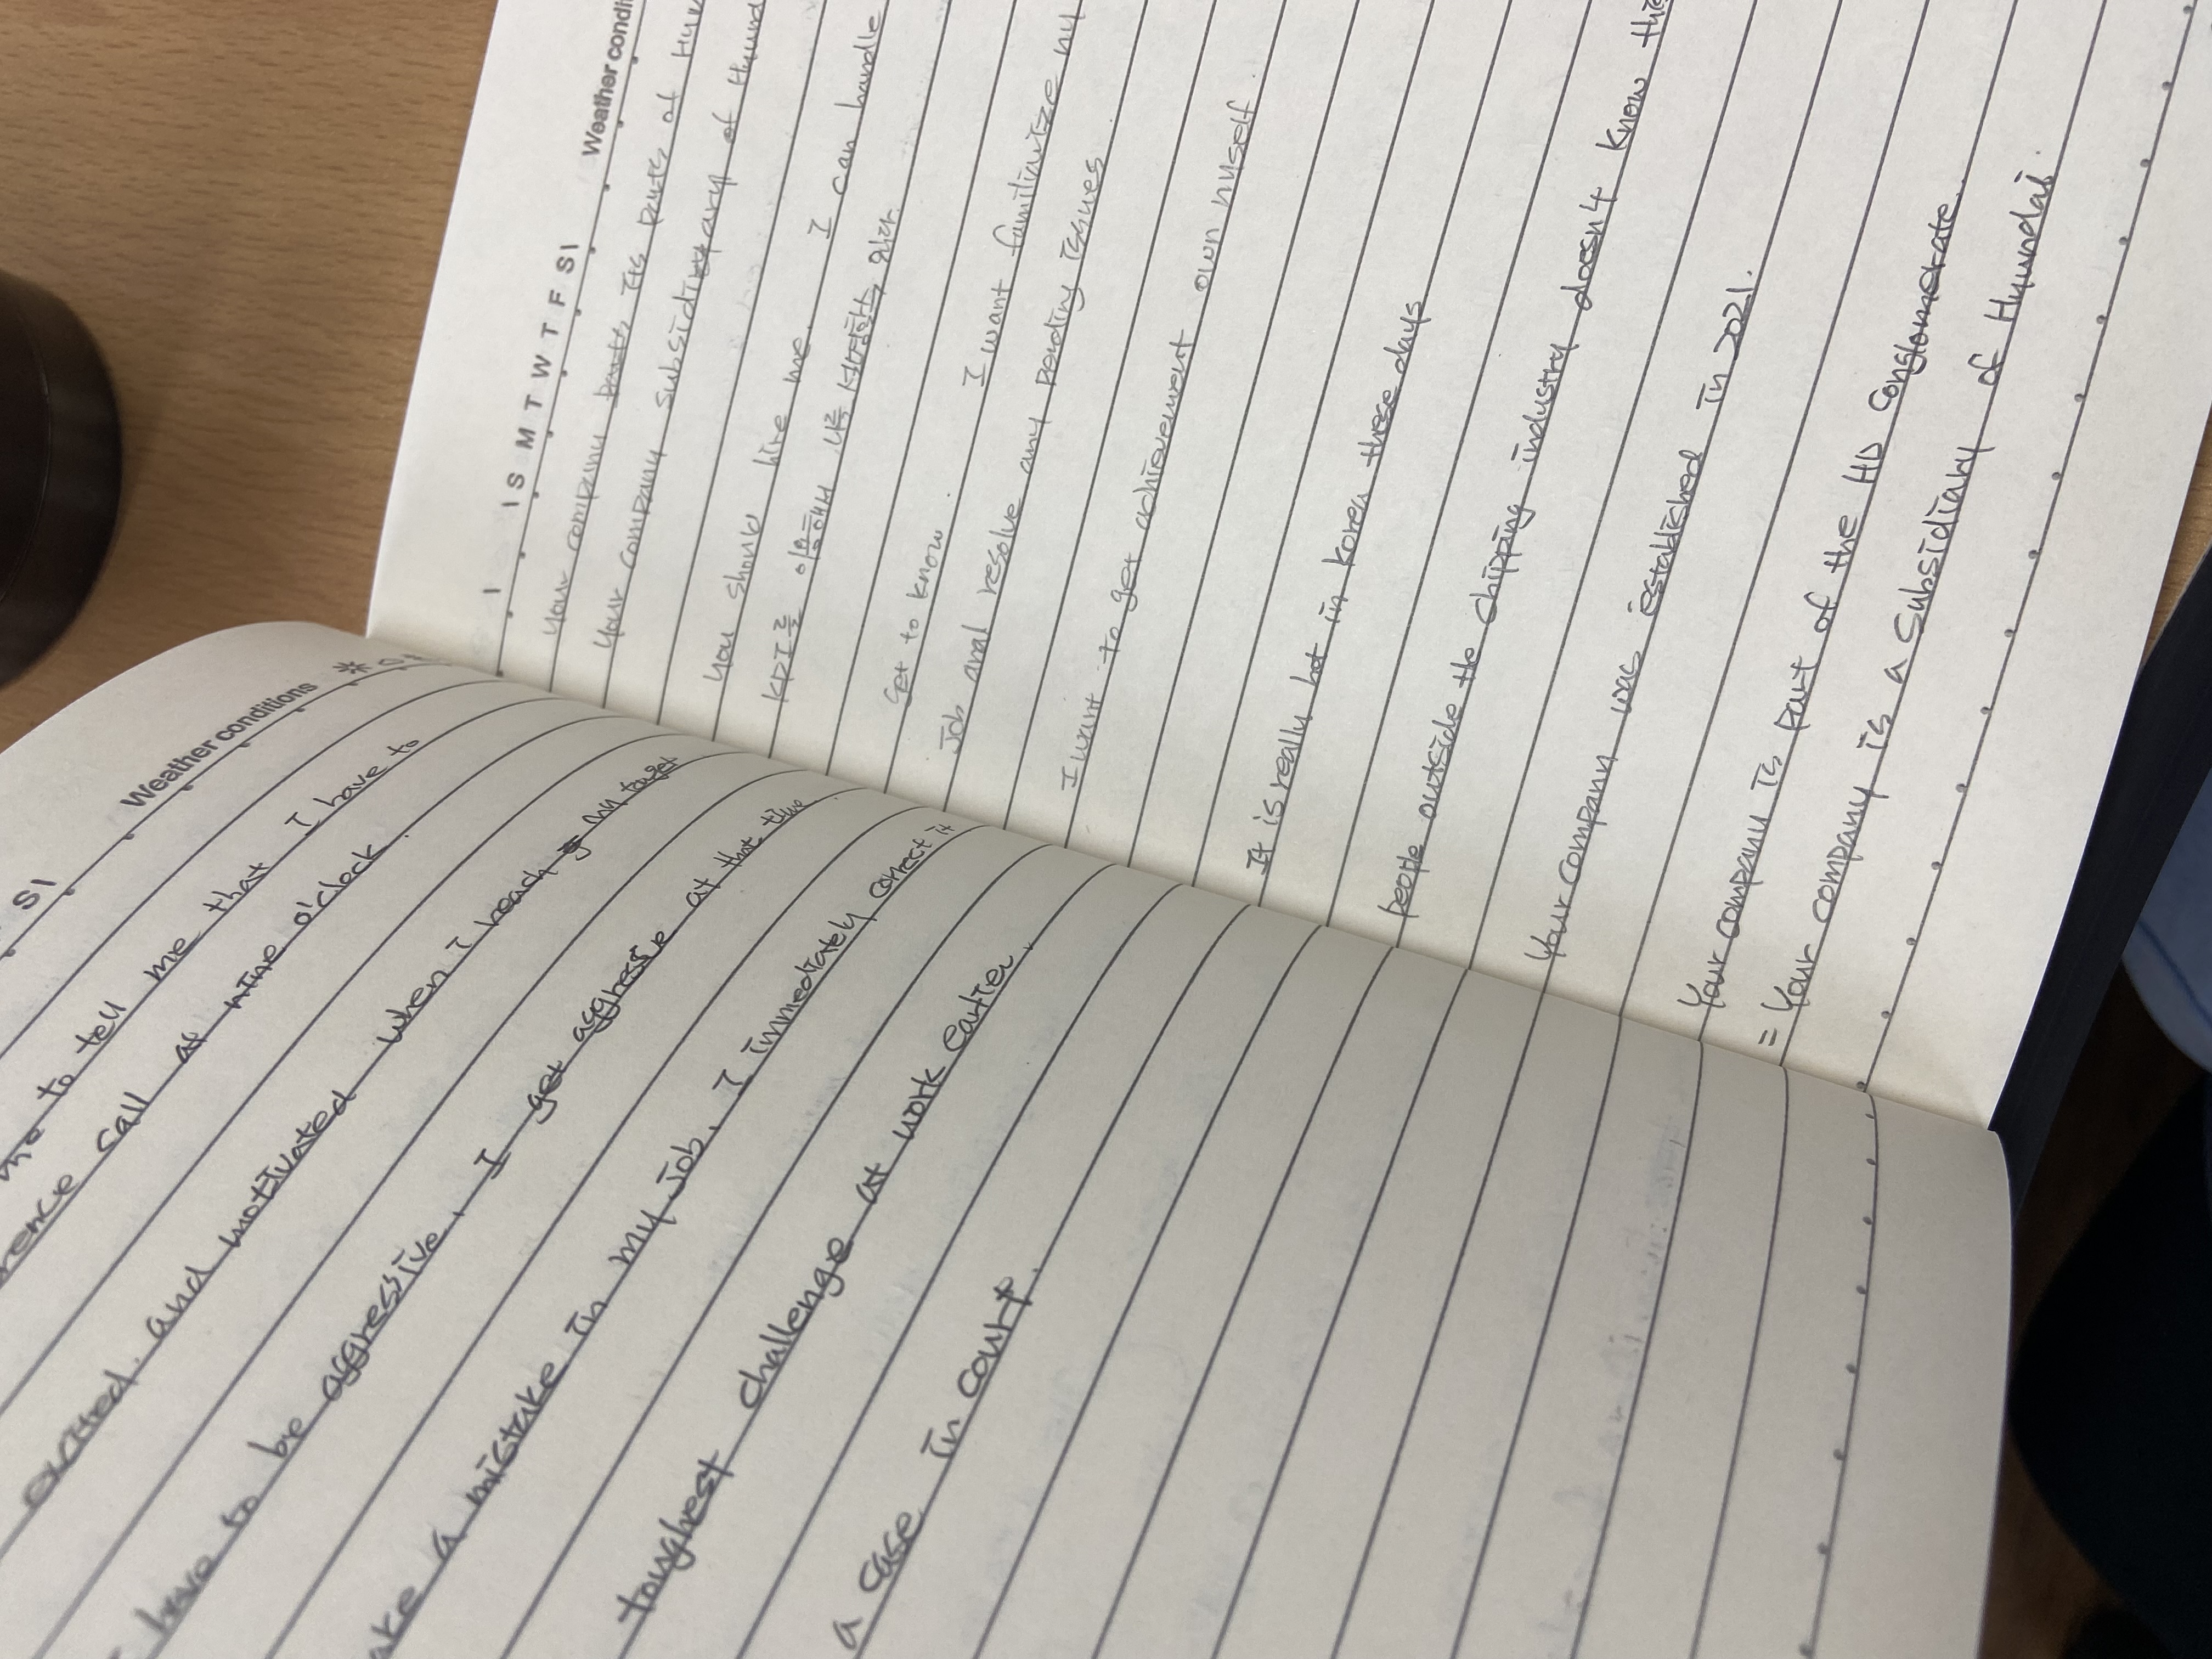 S I Weather conditions
me to tell me that I have to
call at nine o'clock.
excited. and motivated when i reach my target
have to be aggressive, I get aggressive at that time
a mistake in my job, I immediately correct it
toughest challenge at work earlier.
a case in court.
I I S M T W T F S I Weather condi
Your company parts its parts of Hyu
Your company subsidiary of Hyund
You should hire me. I can handle
KPI를 이용해서 나를
Get to know I want familiarize my
Job and resolve any pending issues
I want to get achievement own myself.
It is really hot in korea these days
people outside the shipping industry doesn't know this
Your company was established in 2021.
Your company is part of the HD conglomerate.
= Your company is a subsidiary of Hyundai.